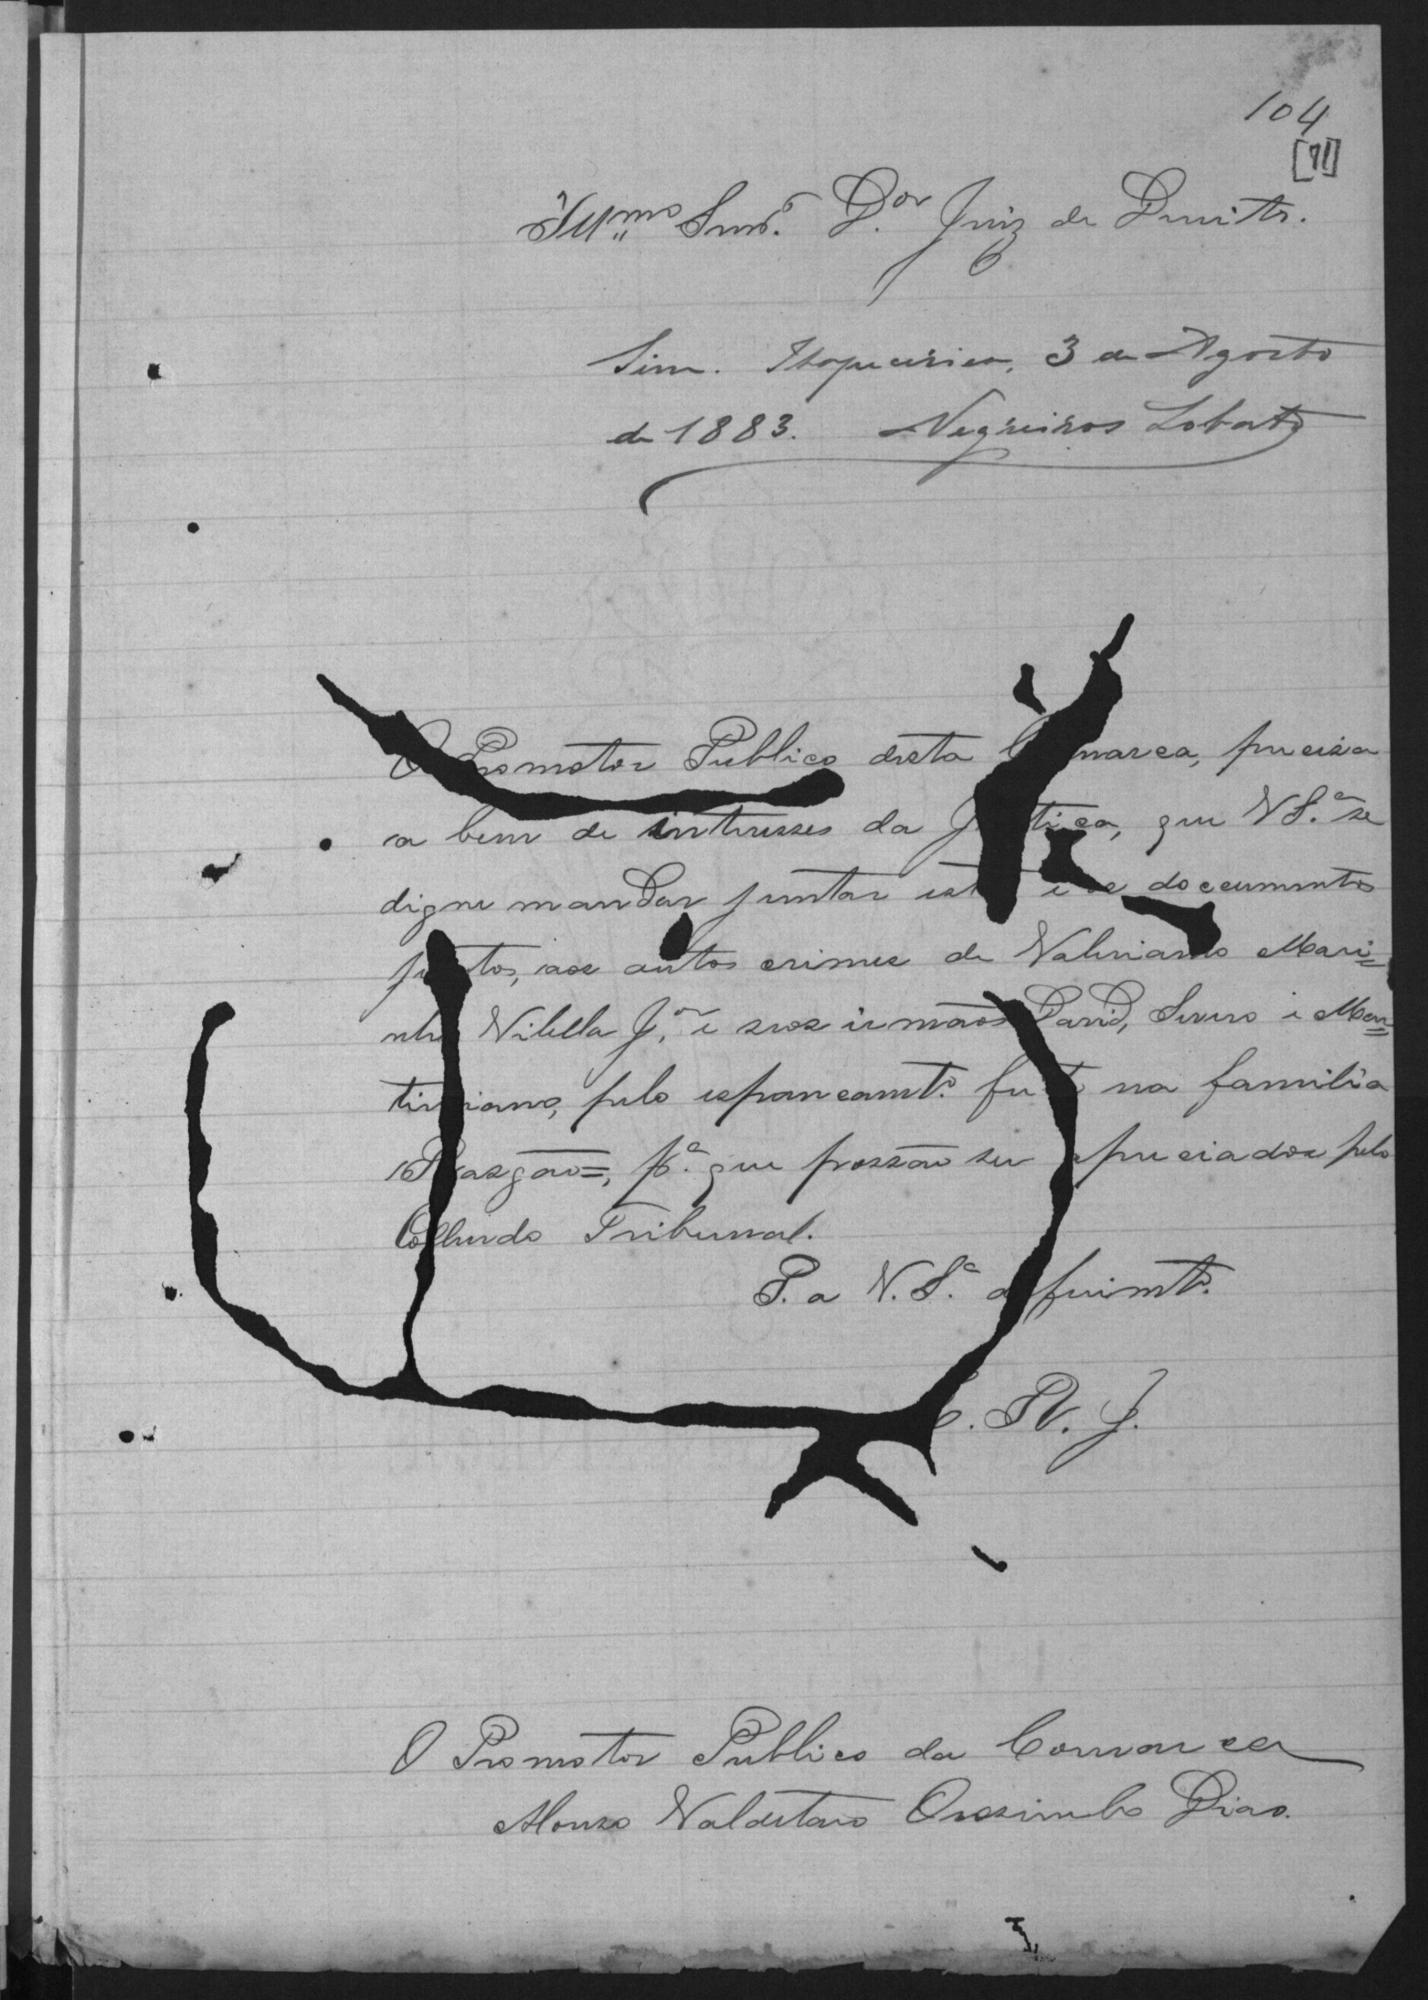 104
[71]
Illmo Snr. Dor Juiz de Direito.
Sim. Itapecirica, 3 de Agosto
de 1883. Negreiros Lobato
O Promotor Publico desta Comarca, precisa
a bem de interesses da Justiça, que V Sª se
digne mandar juntar esta e os documentos
juntos, aos autos crimes de Valeriano Mari=
nho Vilella Jor e seos irmãos David, Severo e Mar=
tiniano, pelo espancamto feito na familia
Rasgão=, pª que possão ser apreciados pelo
Collendo Tribunal.
P. a V. Sª deferimto
E. R. J.
O Promotor Publico da Comarca
Alonso Valdetaro Dias.